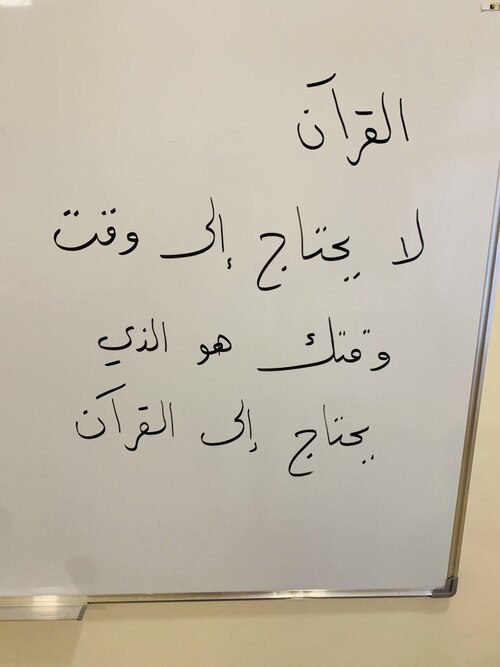 القرآن
لا يحتاج إلى وقت
وقتك هو الذي
يحتاج إلى القرآن